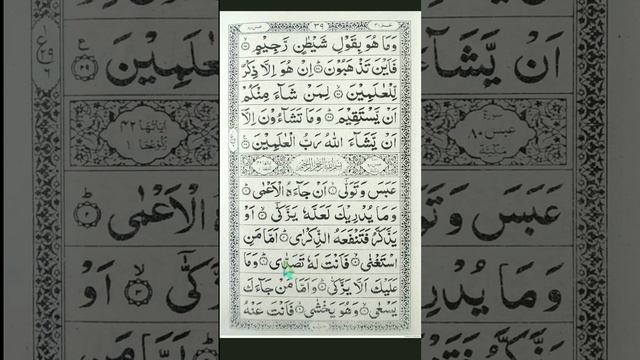 ٣٩
وَمَا هُوَ بِقَوْلِ شَيْطٰنٍ رَّجِيْمٍ
فَاَيْنَ تَذْهَبُوْنَ اِنْ هُوَ اِلَّا ذِكْرٌ
لِّلْعٰلَمِيْنَ لِمَنْ شَآءَ مِنْكُمْ
اَنْ يَّسْتَقِيْمَ وَمَا تَشَآءُوْنَ اِلَّآ
اَنْ يَّشَآءَ اللّٰهُ رَبُّ الْعٰلَمِيْنَ
بِسْمِ اللّٰهِ الرَّحْمٰنِ الرَّحِيْمِ
عَبَسَ وَتَوَلّٰٓى اَنْ جَآءَهُ الْاَعْمٰى
وَمَا يُدْرِيْكَ لَعَلَّهٗ يَزَّكّٰٓى اَوْ
يَذَّكَّرُ فَتَنْفَعَهُ الذِّكْرٰى اَمَّا مَنِ
اسْتَغْنٰى فَاَنْتَ لَهٗ تَصَدّٰى وَمَا
عَلَيْكَ اَلَّا يَزَّكّٰى وَاَمَّا مَنْ جَآءَكَ
يَسْعٰى وَهُوَ يَخْشٰى فَاَنْتَ عَنْهُ